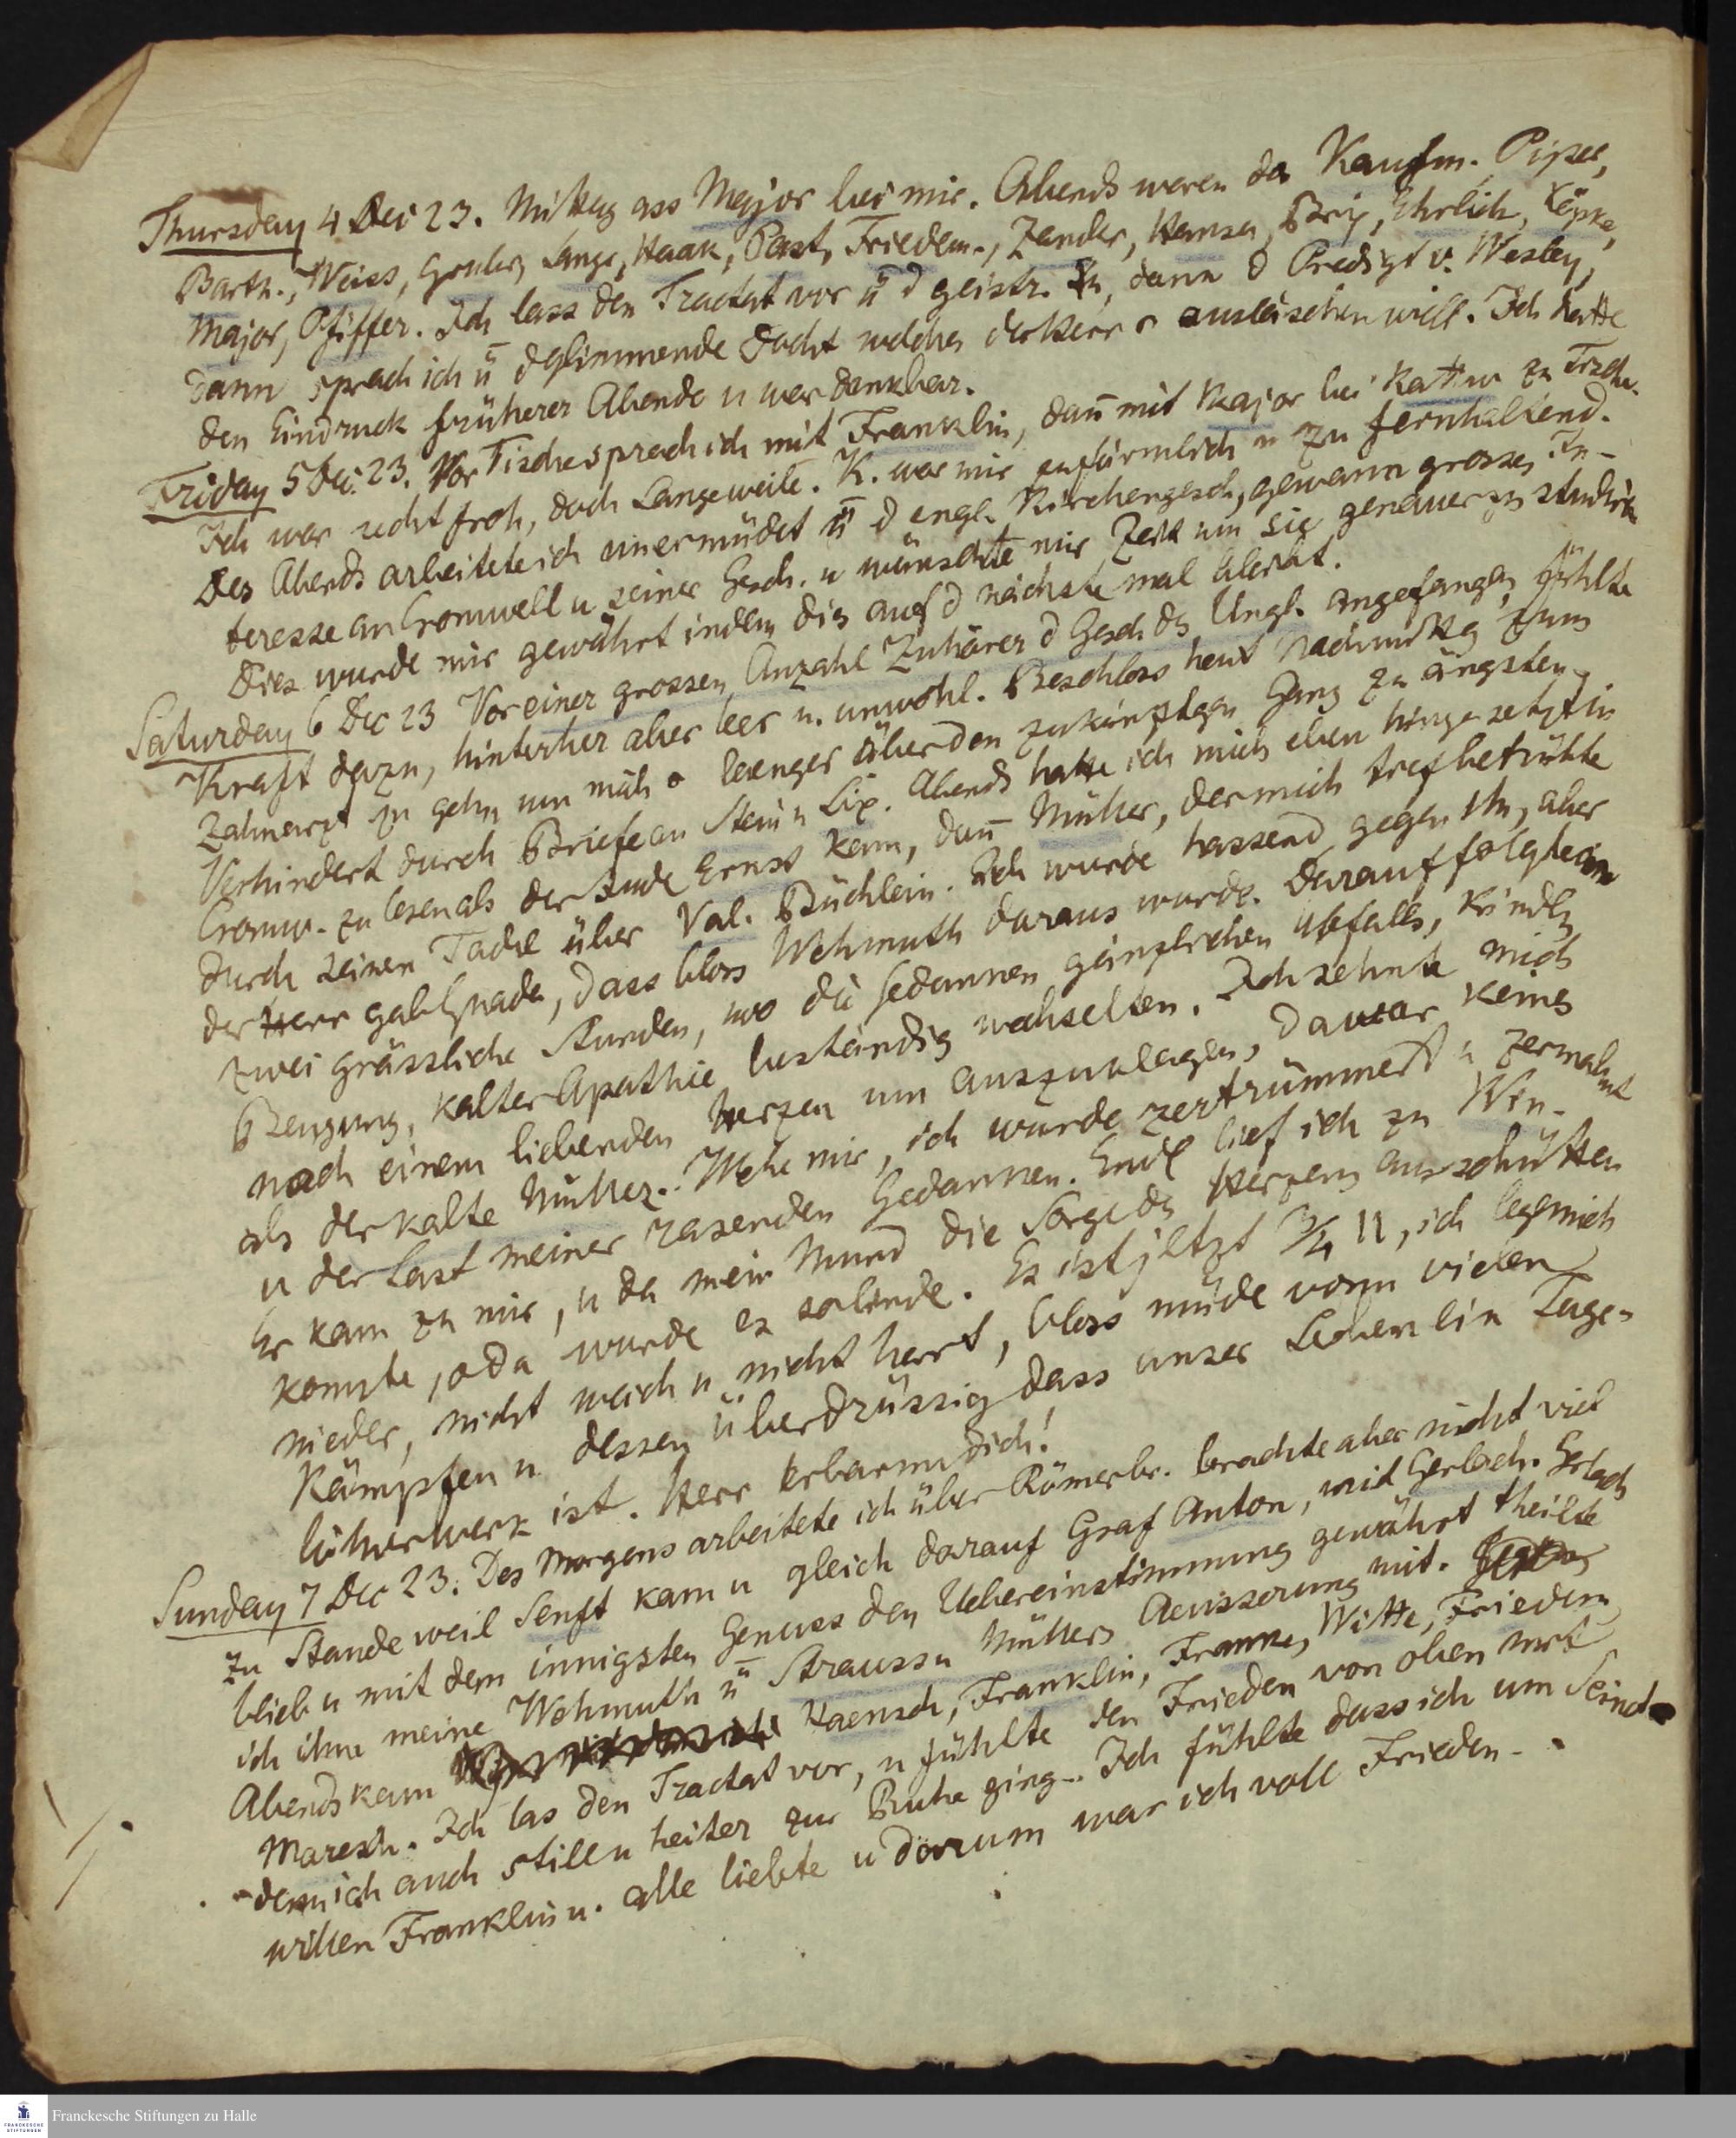 Thursday 4 Dec 23. Mittag ass Major bei mir. Abends waren da Kaufm. Piper,
Barth., Weiss, Lange, Haak, Past, Friedem., Zander, Hansen, Ehrlich, Köpke,
Major, Pfiffer. Ich lass den Tractat vor ü d geistr. dann d Predigt v. Wesley,
dann sprach ich ü d glimmende Docht welches der Herr o auslöschen will. Ich hatte
den Eindruck früherer Abende u war dankbar.
Friday 5 Dec. 23. Vor Tische sprach ich mit Franklin, dañ mit Major bei Kottw zu Tische.
Ich war recht froh, doch Langeweile. K. war mir zu förmlich u zu fernhaltend.
Des Abends arbeitete ich unermüdet ü d engl. Kirchengesch, gewann grosses In-
teresse an Cromwell u seiner Gesch. u wünschte mir Zeit um sie genauer zu studiren
Dies wurde mir gewährt indem dies auf d nächste mal bleibt.
Saturday 6 Dec 23 Vor einer grossen Anzahl Zuhörer d Gesch ds Ungl. angefangen, fühlte
Kraft dazu, hinterher aber leer u. unwohl. Beschloss heut Nachmittg zum
Zahnarzt zu gehn um mich o laenger über den zukünftgen Gang zu ängsten.
Verhindert durch Briefe an Stein u Lix. Abends hatte ich mich eben hingesetzt in
Cromw. zu lesen als der Jude Ernst kam, dañ Müller, der mich tief betrübte
durch seinen Tadel über Val. Büchlein. Ich wurde hassend gegen ihn, aber
der Herr gab Gnade, dass bloss Wehmuth daraus wurde. Darauf folgten
zwei grässliche Stunden, wo die Gedanken gänzlichen Abfalls, Kindlr
Beugung, kalter Apathie beständig wechselten. Ich sehnte mich
nach einem liebenden Herzen um auszuklagen, da war keines
als der kalte Müller. Wehe mir, ich wurde zertrümmert u zermalmt
u der Last meiner rasenden Gedanken. Endl lief ich zu Win-
Er kam zu mir, u da mein Mund die Sorge ds Herzens ausschütten
konnte, o da wurde es gelinde. Es ist jetzt 3/4 11, ich lege mich
nieder, nicht weich u nicht hart, bloss müde vom vielen
Kämpfen u dessen überdrüssig dass unser Leben ein Tage-
löhnerwerk ist. Herr erbarm dich!
Sunday 7 Dec 23. Des Morgens arbeitete ich über Römerbr. brachte aber nicht viel
zu Stande weil Senft kam u gleich darauf Graf Anton, mit Gerlach. Gerlach
blieb u mit dem innigsten Genuss den Uebereinstimmung gewährt theilte
ich ihm meine Wehmuth ü Strauss u Müllers Aeusserung mit.
Abends kam Haensch, Franklin, Franke, Witte, Friedem
Maresch. Ich las den Tractat vor, u fühlte den Frieden von oben mit
dem ich auch still u heiter zur Ruhe ging. Ich fühlte dass ich um Seinet
willen Franklin u. alle liebte u darum war ich voll Frieden.
Franckesche Stiftungen zu Halle